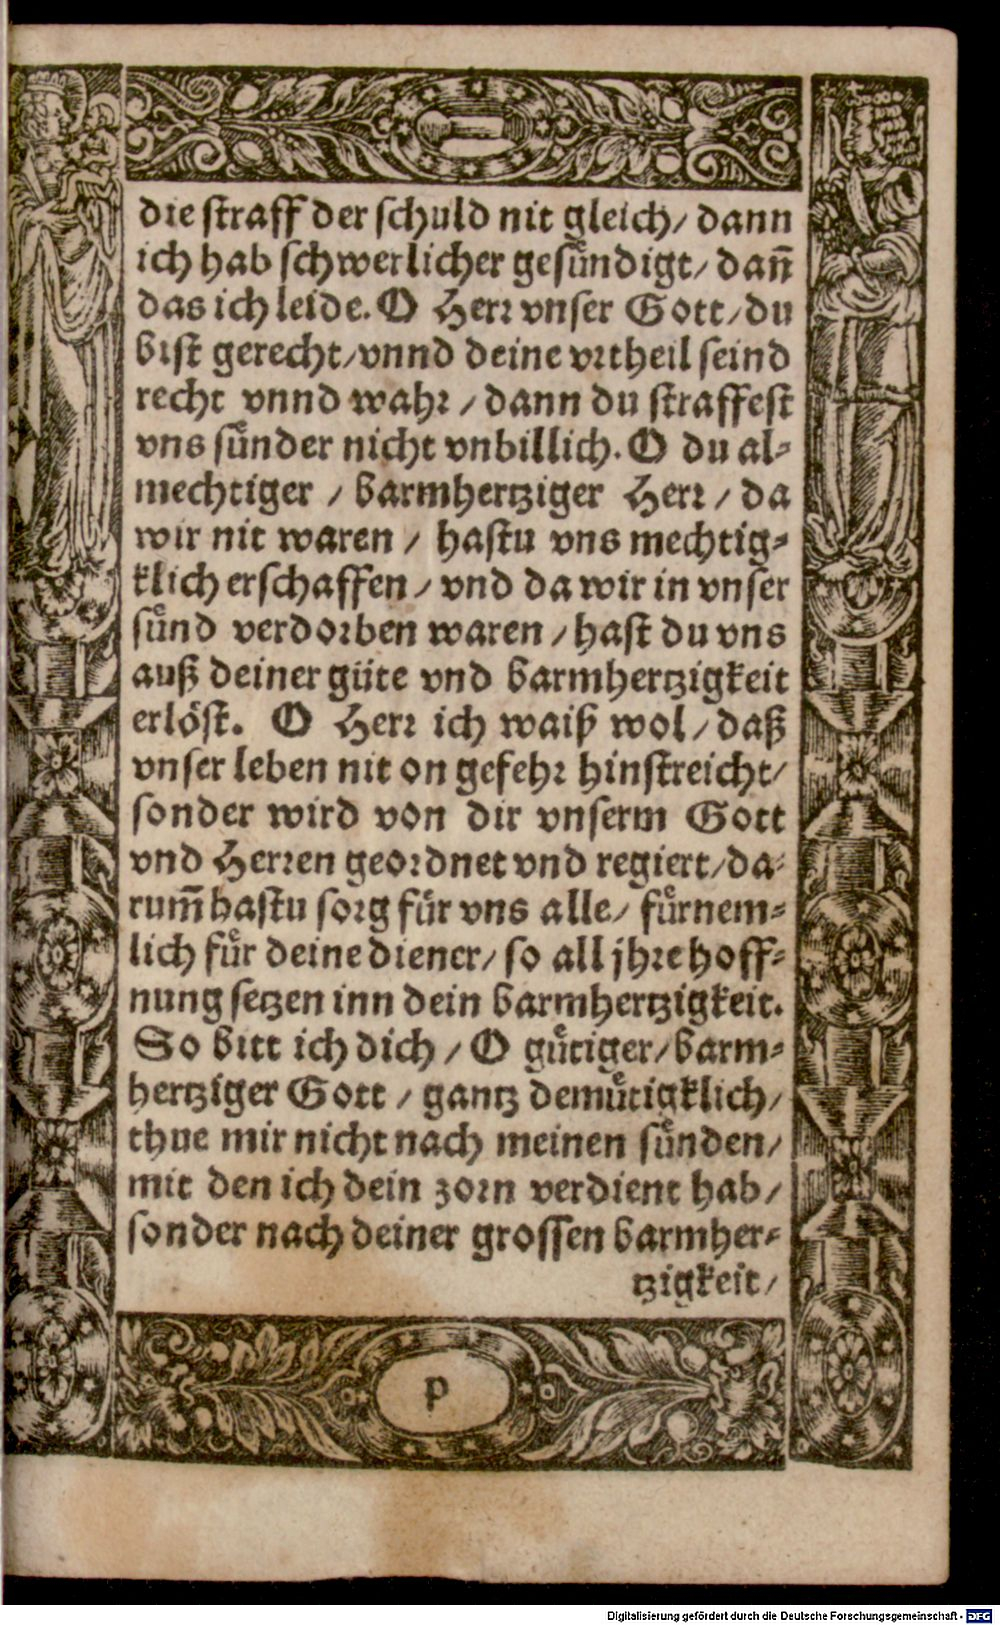 die straff der schuld nit gleich/ dann
ich hab schwerlicher gesündigt/ dañ
das ich leide. O Herr vnser Gott/ du
bist gerecht/ vnnd deine vrtheil seind
recht vnnd wahr / dann du straffest
vns sünder nicht vnbillich. O du al-
mechtiger / barmhertziger Herr / da
wir nit waren / hastu vns mechtig-
klich erschaffen / vnd da wir in vnser
sünd verdorben waren / hast du vns
auß deiner güte vnd barmhertzigkeit
erlöst. O Herr ich waiß wol/ daß
vnser leben nit on gefehr hinstreicht/
sonder wird von dir vnserm Gott
vnd Herren geordnet vnd regiert/ da-
rum̃ hastu sorg für vns alle/ fürnem-
lich für deine diener/ so all jhre hoff-
nung setzen inn dein barmhertzigkeit.
So bitt ich dich / O gütiger/ barm-
hertziger Gott / gantz demütigklich/
thue mir nicht nach meinen sünden/
mit den ich dein zorn verdient hab/
sonder nach deiner grossen barmher-
tzigkeit/
p
Digitalisierung gefördert durch die Deutsche Forschungsgemeinschaft - DFG